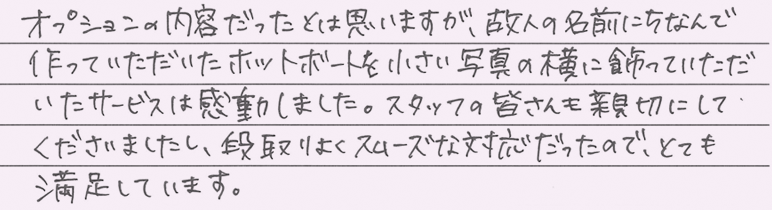 オプションの内容だったとは思いますが、故人の名前にちなんで
作っていただいたホットボートを小さい写真の横に飾っていただ
いたサービスは感動しました。スタッフの皆さんも親切にして
くださいましたし、段取りよくスムーズな対応だったので、とても
満足しています。